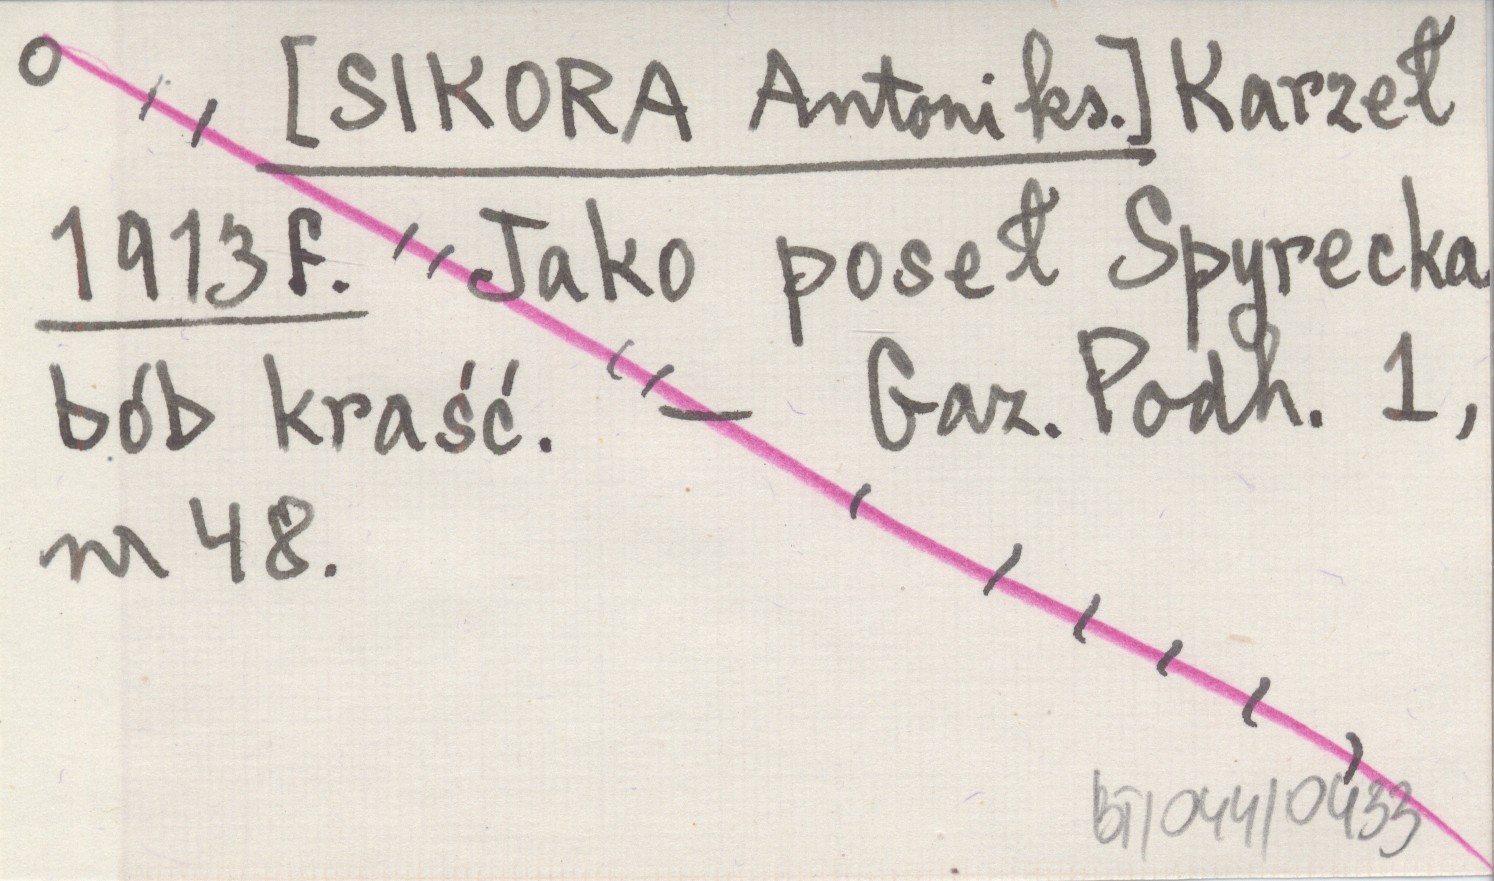 [SIKORA Antoni ks.] Karzeł
1913 f. Jako poseł Spyrecka
bób kraść. — Gaz. Podh. 1,
nr 48.
bī/044/0433